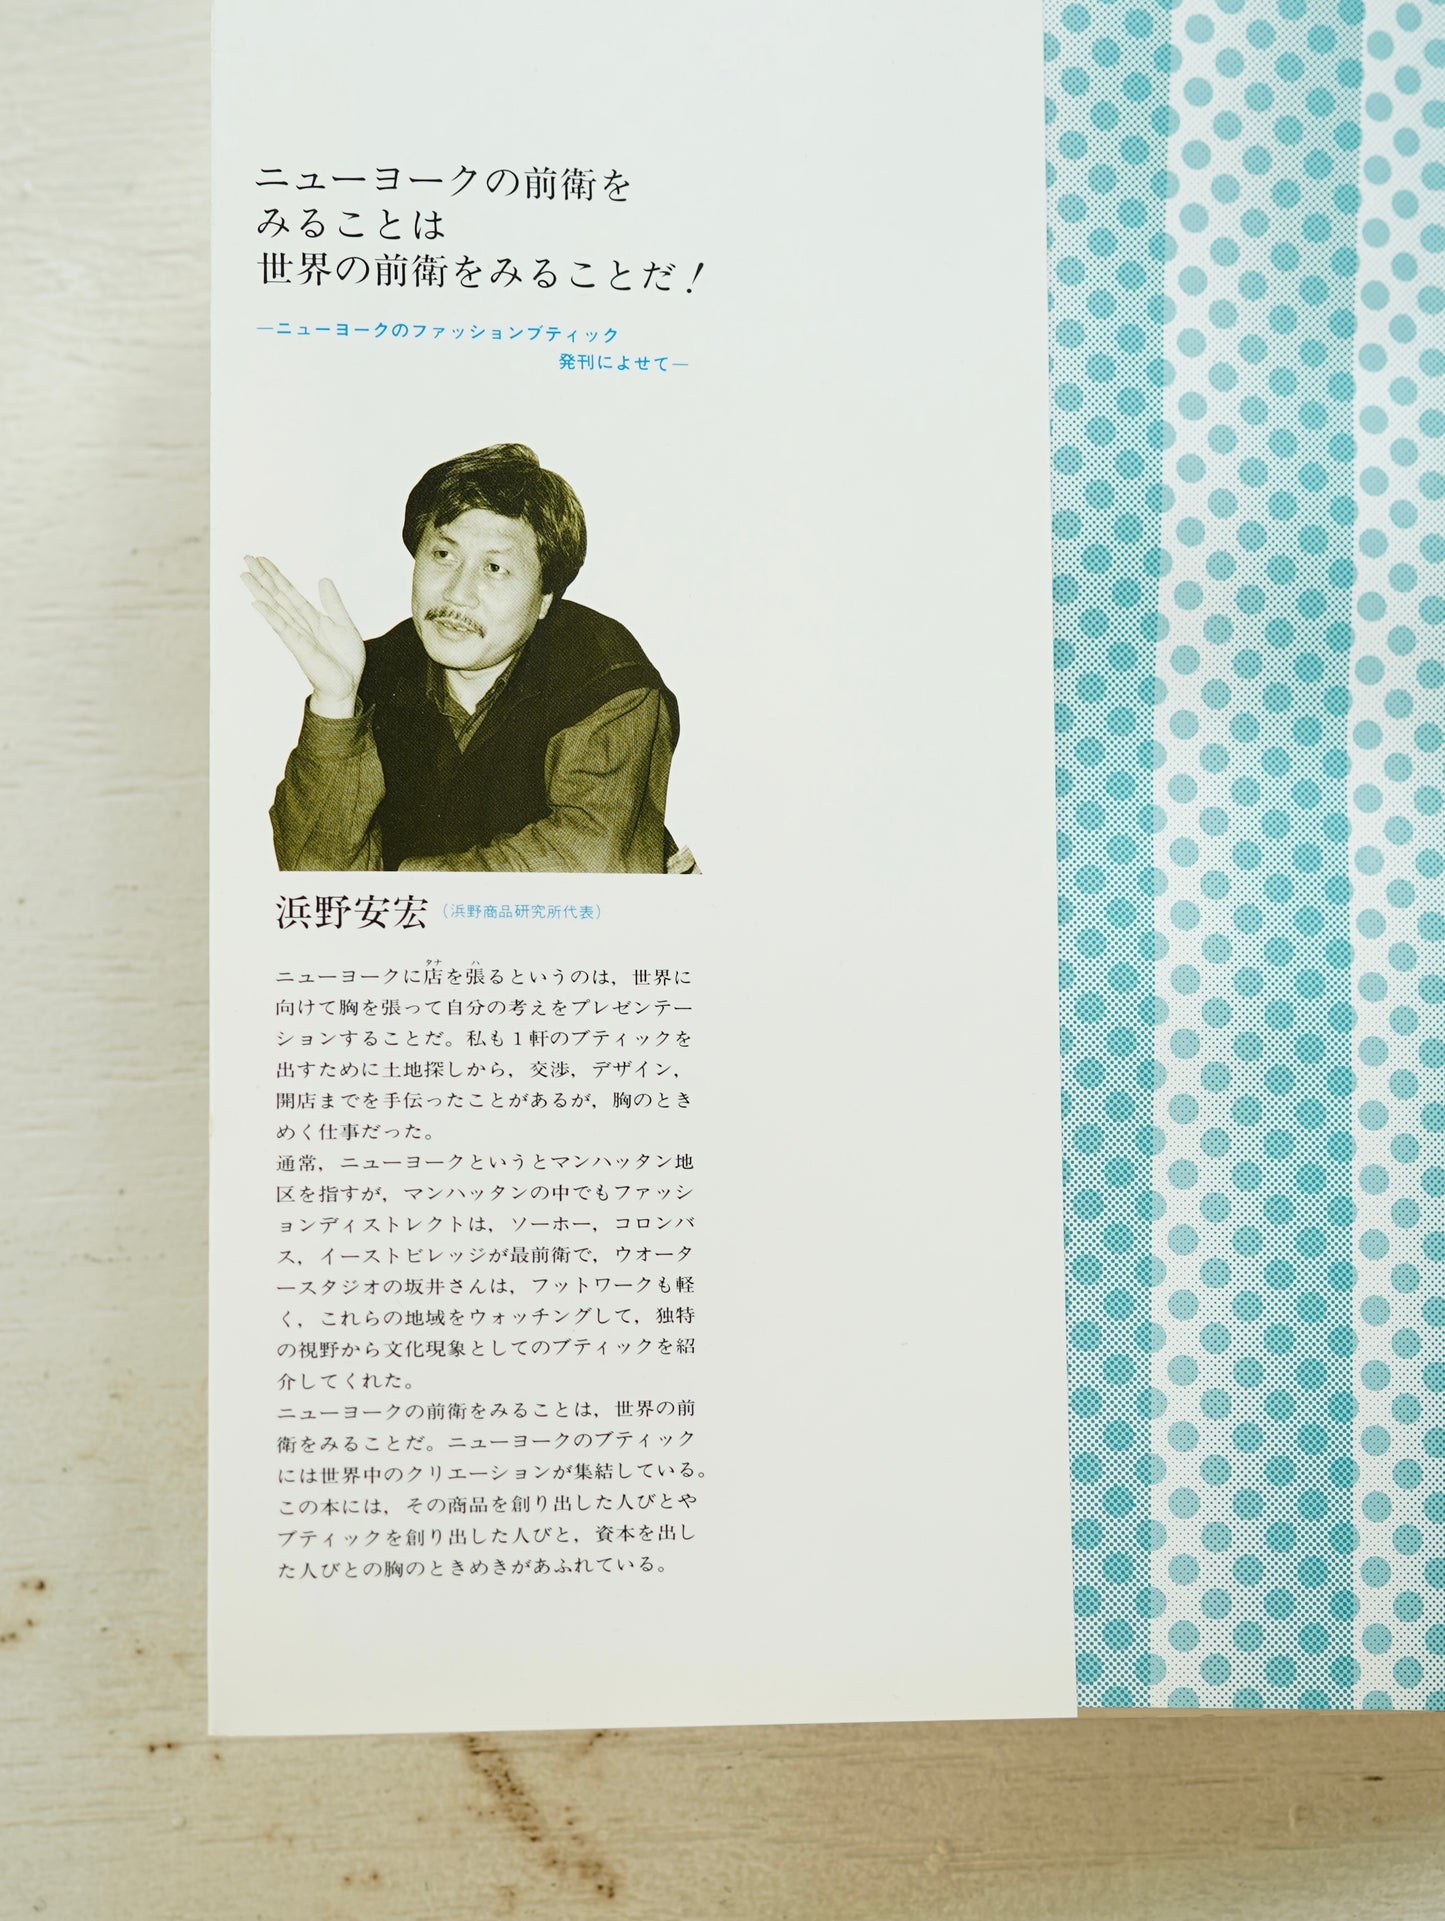 ニューヨークの前衛を
みることは
世界の前衛をみることだ!
—ニューヨークのファッションブティック
発刊によせて—
浜野安宏(浜野商品研究所代表)
タナ ハ
ニューヨークに店を張るというのは，世界に
向けて胸を張って自分の考えをプレゼンテー
ションすることだ。私も1軒のブティックを
出すために土地探しから，交渉，デザイン，
開店までを手伝ったことがあるが，胸のとき
めく仕事だった。
通常，ニューヨークというとマンハッタン地
区を指すが，マンハッタンの中でもファッシ
ョンディストレクトは，ソーホー，コロンバ
ス，イーストビレッジが最前衛で，ウオータ
ースタジオの坂井さんは，フットワークも軽
く，これらの地域をウォッチングして，独特
の視野から文化現象としてのブティックを紹
介してくれた。
ニューヨークの前衛をみることは，世界の前
衛をみることだ。ニューヨークのブティック
には世界中のクリエーションが集結している。
この本には，その商品を創り出した人びとや
ブティックを創り出した人びと，資本を出し
た人びとの胸のときめきがあふれている。